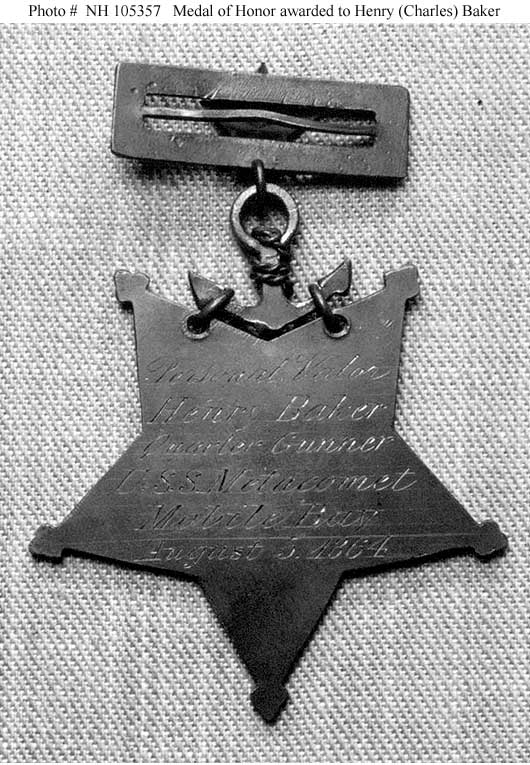 Photo # NH 105357 Medal of Honor awarded to Henry (Charles) Baker
Personal Valor
Henry Baker
Quarter Gunner
U.S.S. Metacomet
Mobile Bay
August 5. 1864